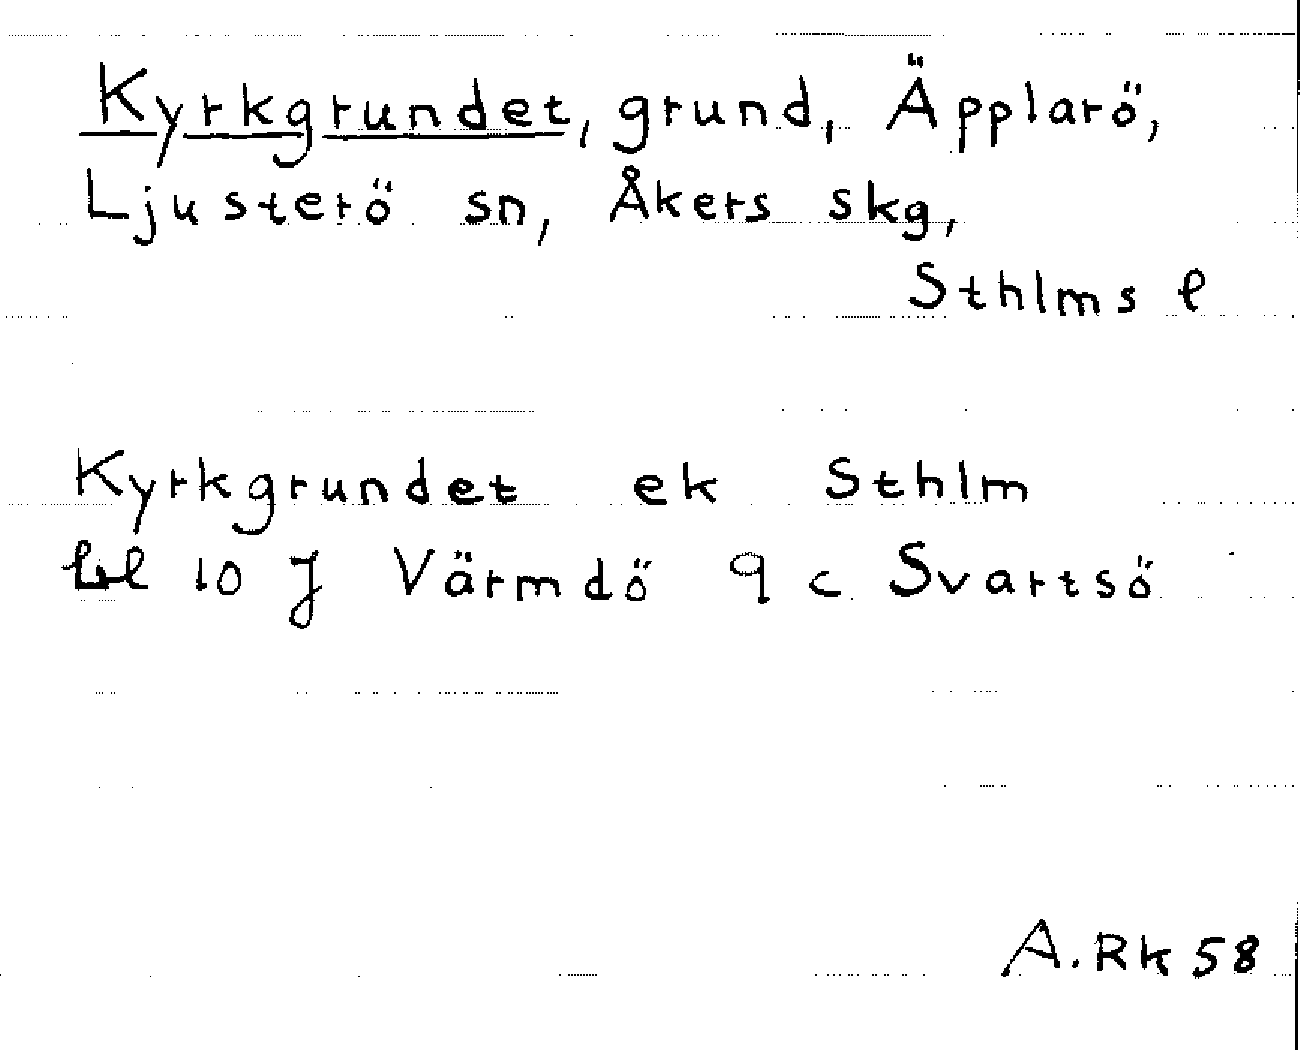 Kyrkgrundet, grund, Äpplarö,
Ljusterö sn, Åkers skg,
Sthlms l
Kyrkgrundet ek Sthlm
bl 10 J Värmdö 9 c Svartsö
A. Rk 58